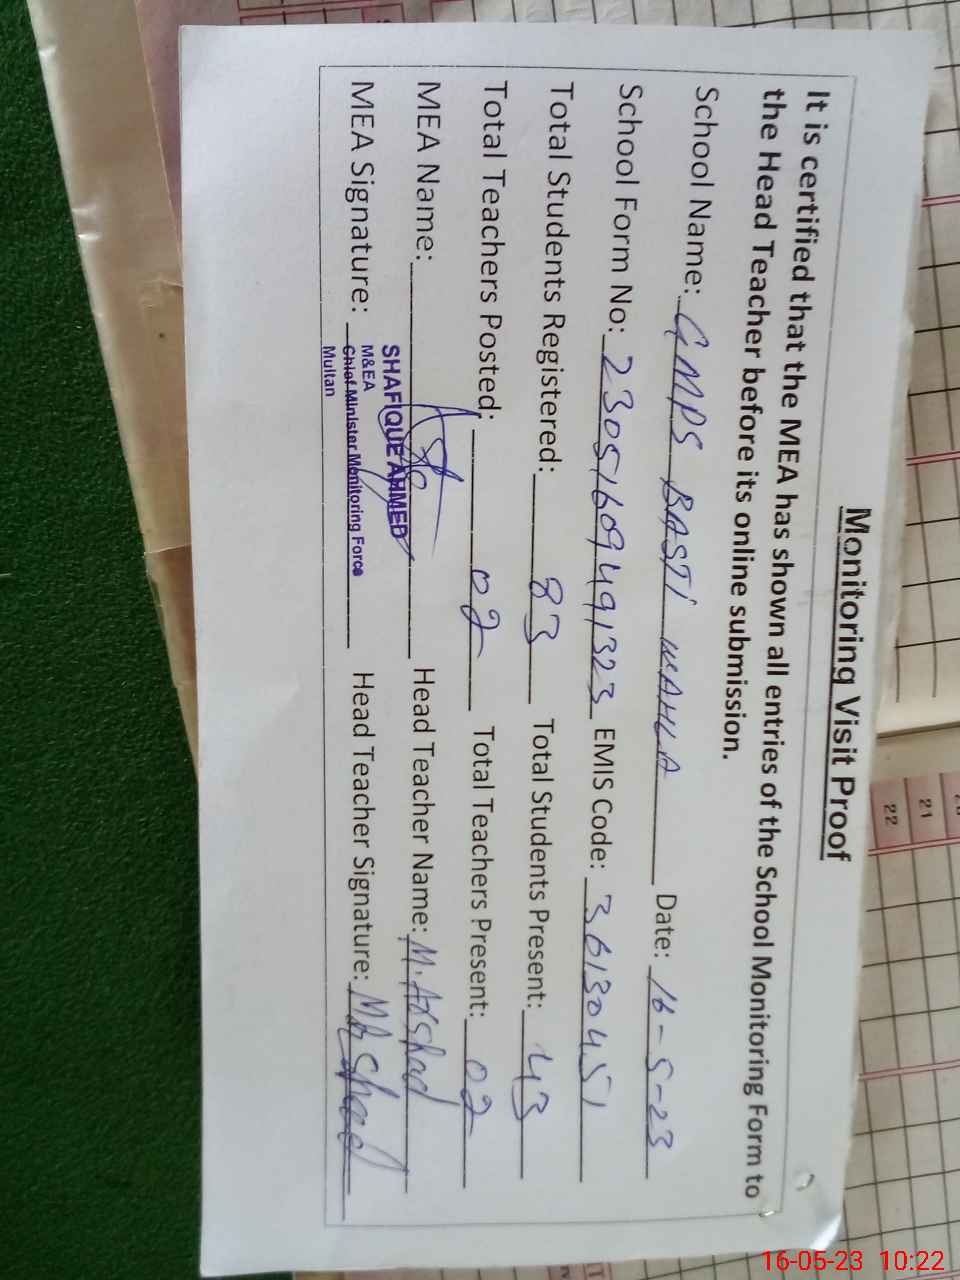 Monitoring Visit Proof
It is certified that the MEA has shown all entries of the School Monitoring Form to
the Head Teacher before its online submission.
School Name: GMPS BASTI WAHLA Date: 16-5-23
School Form No: 230516094491323 EMIS Code: 36130451
Total Students Registered: 83 Total Students Present: 43
Total Teachers Posted: 02 Total Teachers Present: 02
MEA Name: Head Teacher Name: M.Arshad
SHAFIQUE AHMED
MEA Signature: Head Teacher Signature: M Arshad
M&EA
Chief Minister Monitoring Force
Multan
21
22
16-05-23 10:22